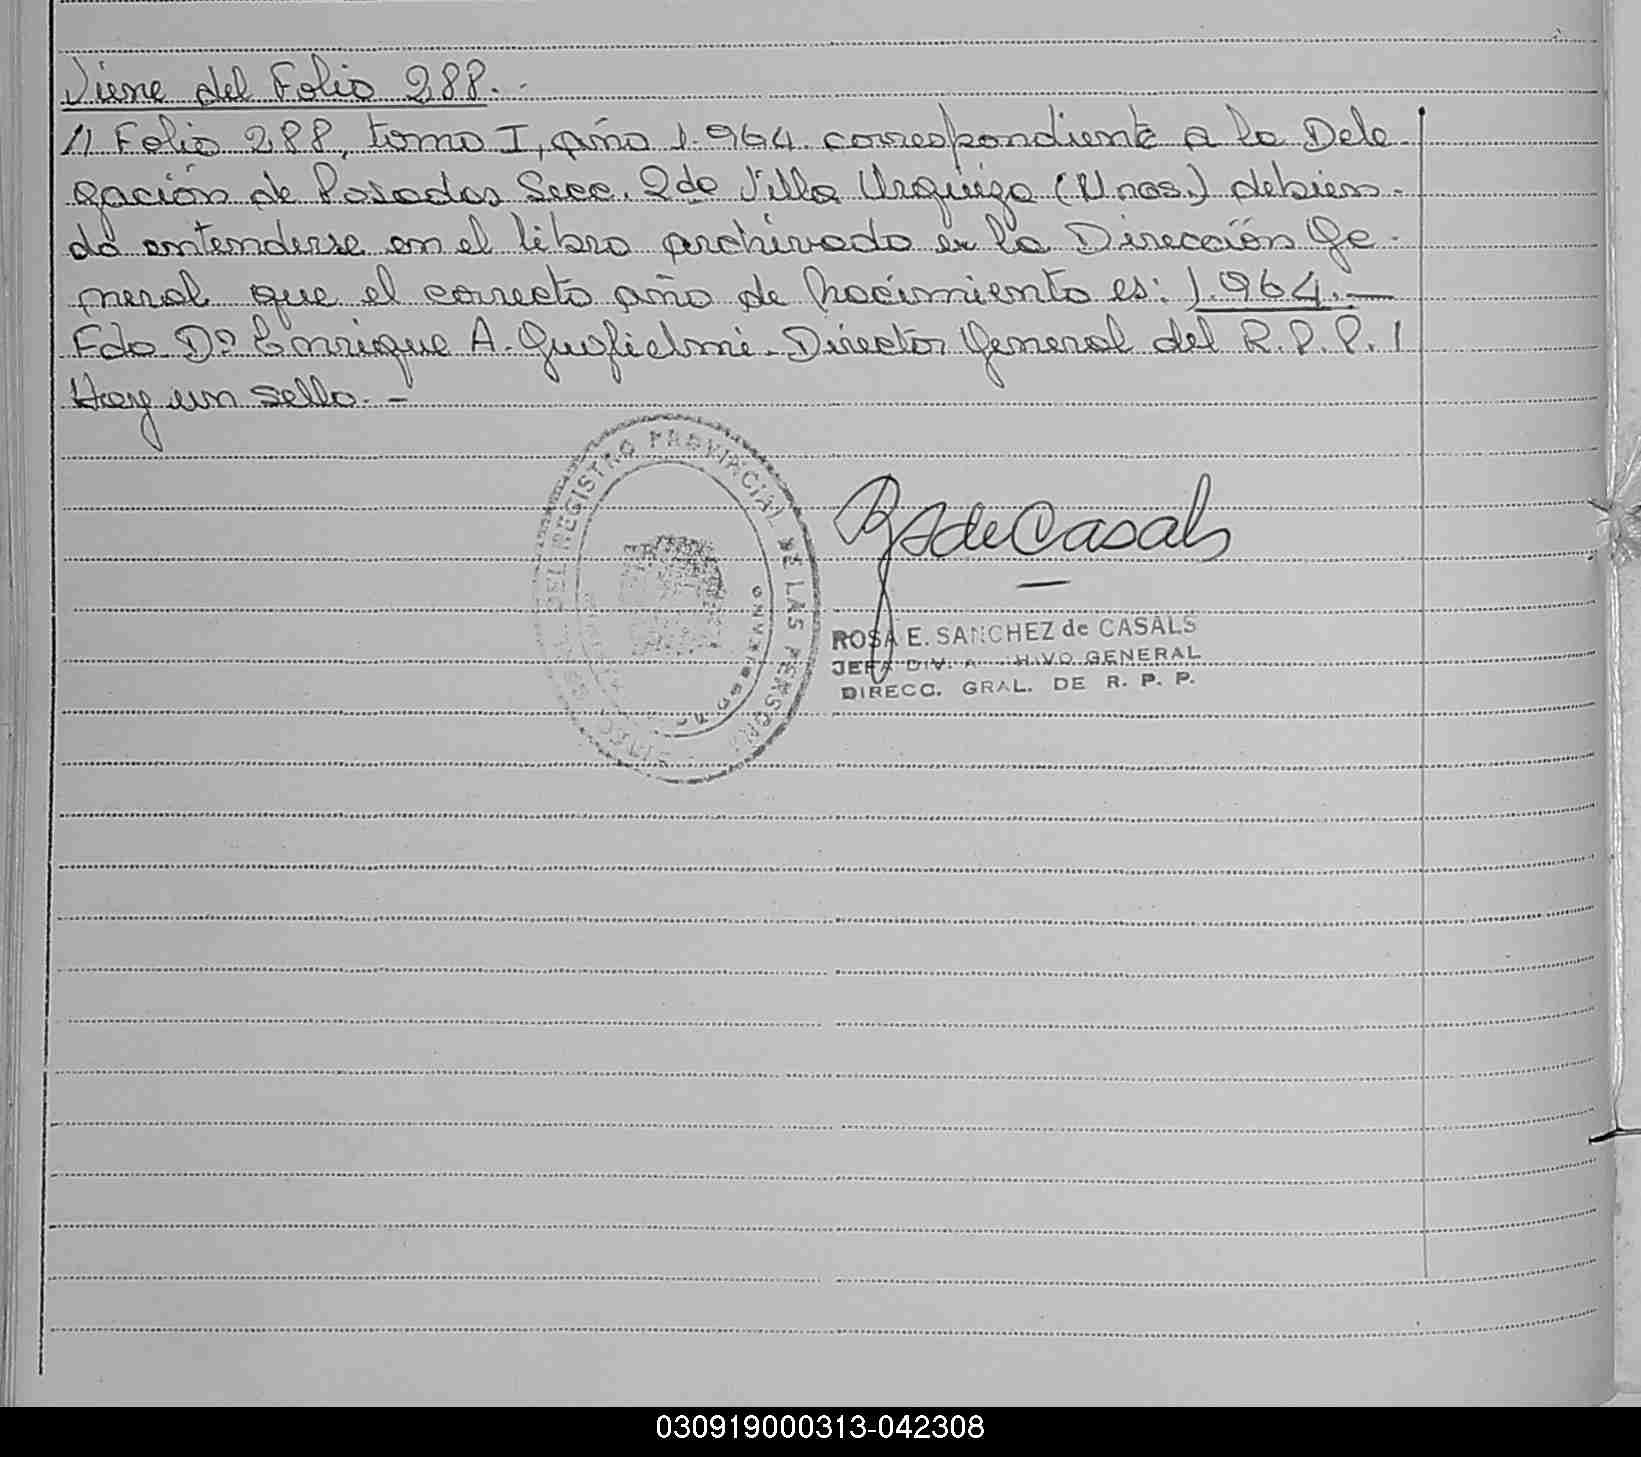 Viene del Folio 288.-
// Folio 288, tomo I, año 1.964. correspondiente a la Dele
gación de Posadas Secc. 2da Villa Urquiza (Mnes.) debien-
do entenderse en el libro archivado en la Dirección Ge-
neral que el correcto año de nacimiento es: 1.964.-
Fdo Dº Enrique A. Guglielmi - Director General del R.P.P. /
Hay un sello.-
DEL REGISTRO PROVINCIAL DE LAS PERSONAS
R S de Casals
ROSA E. SANCHEZ de CASALS
JEFA DIV. ARCHIVO GENERAL
DIRECC. GRAL. DE R. P. P.
030919000313-042308